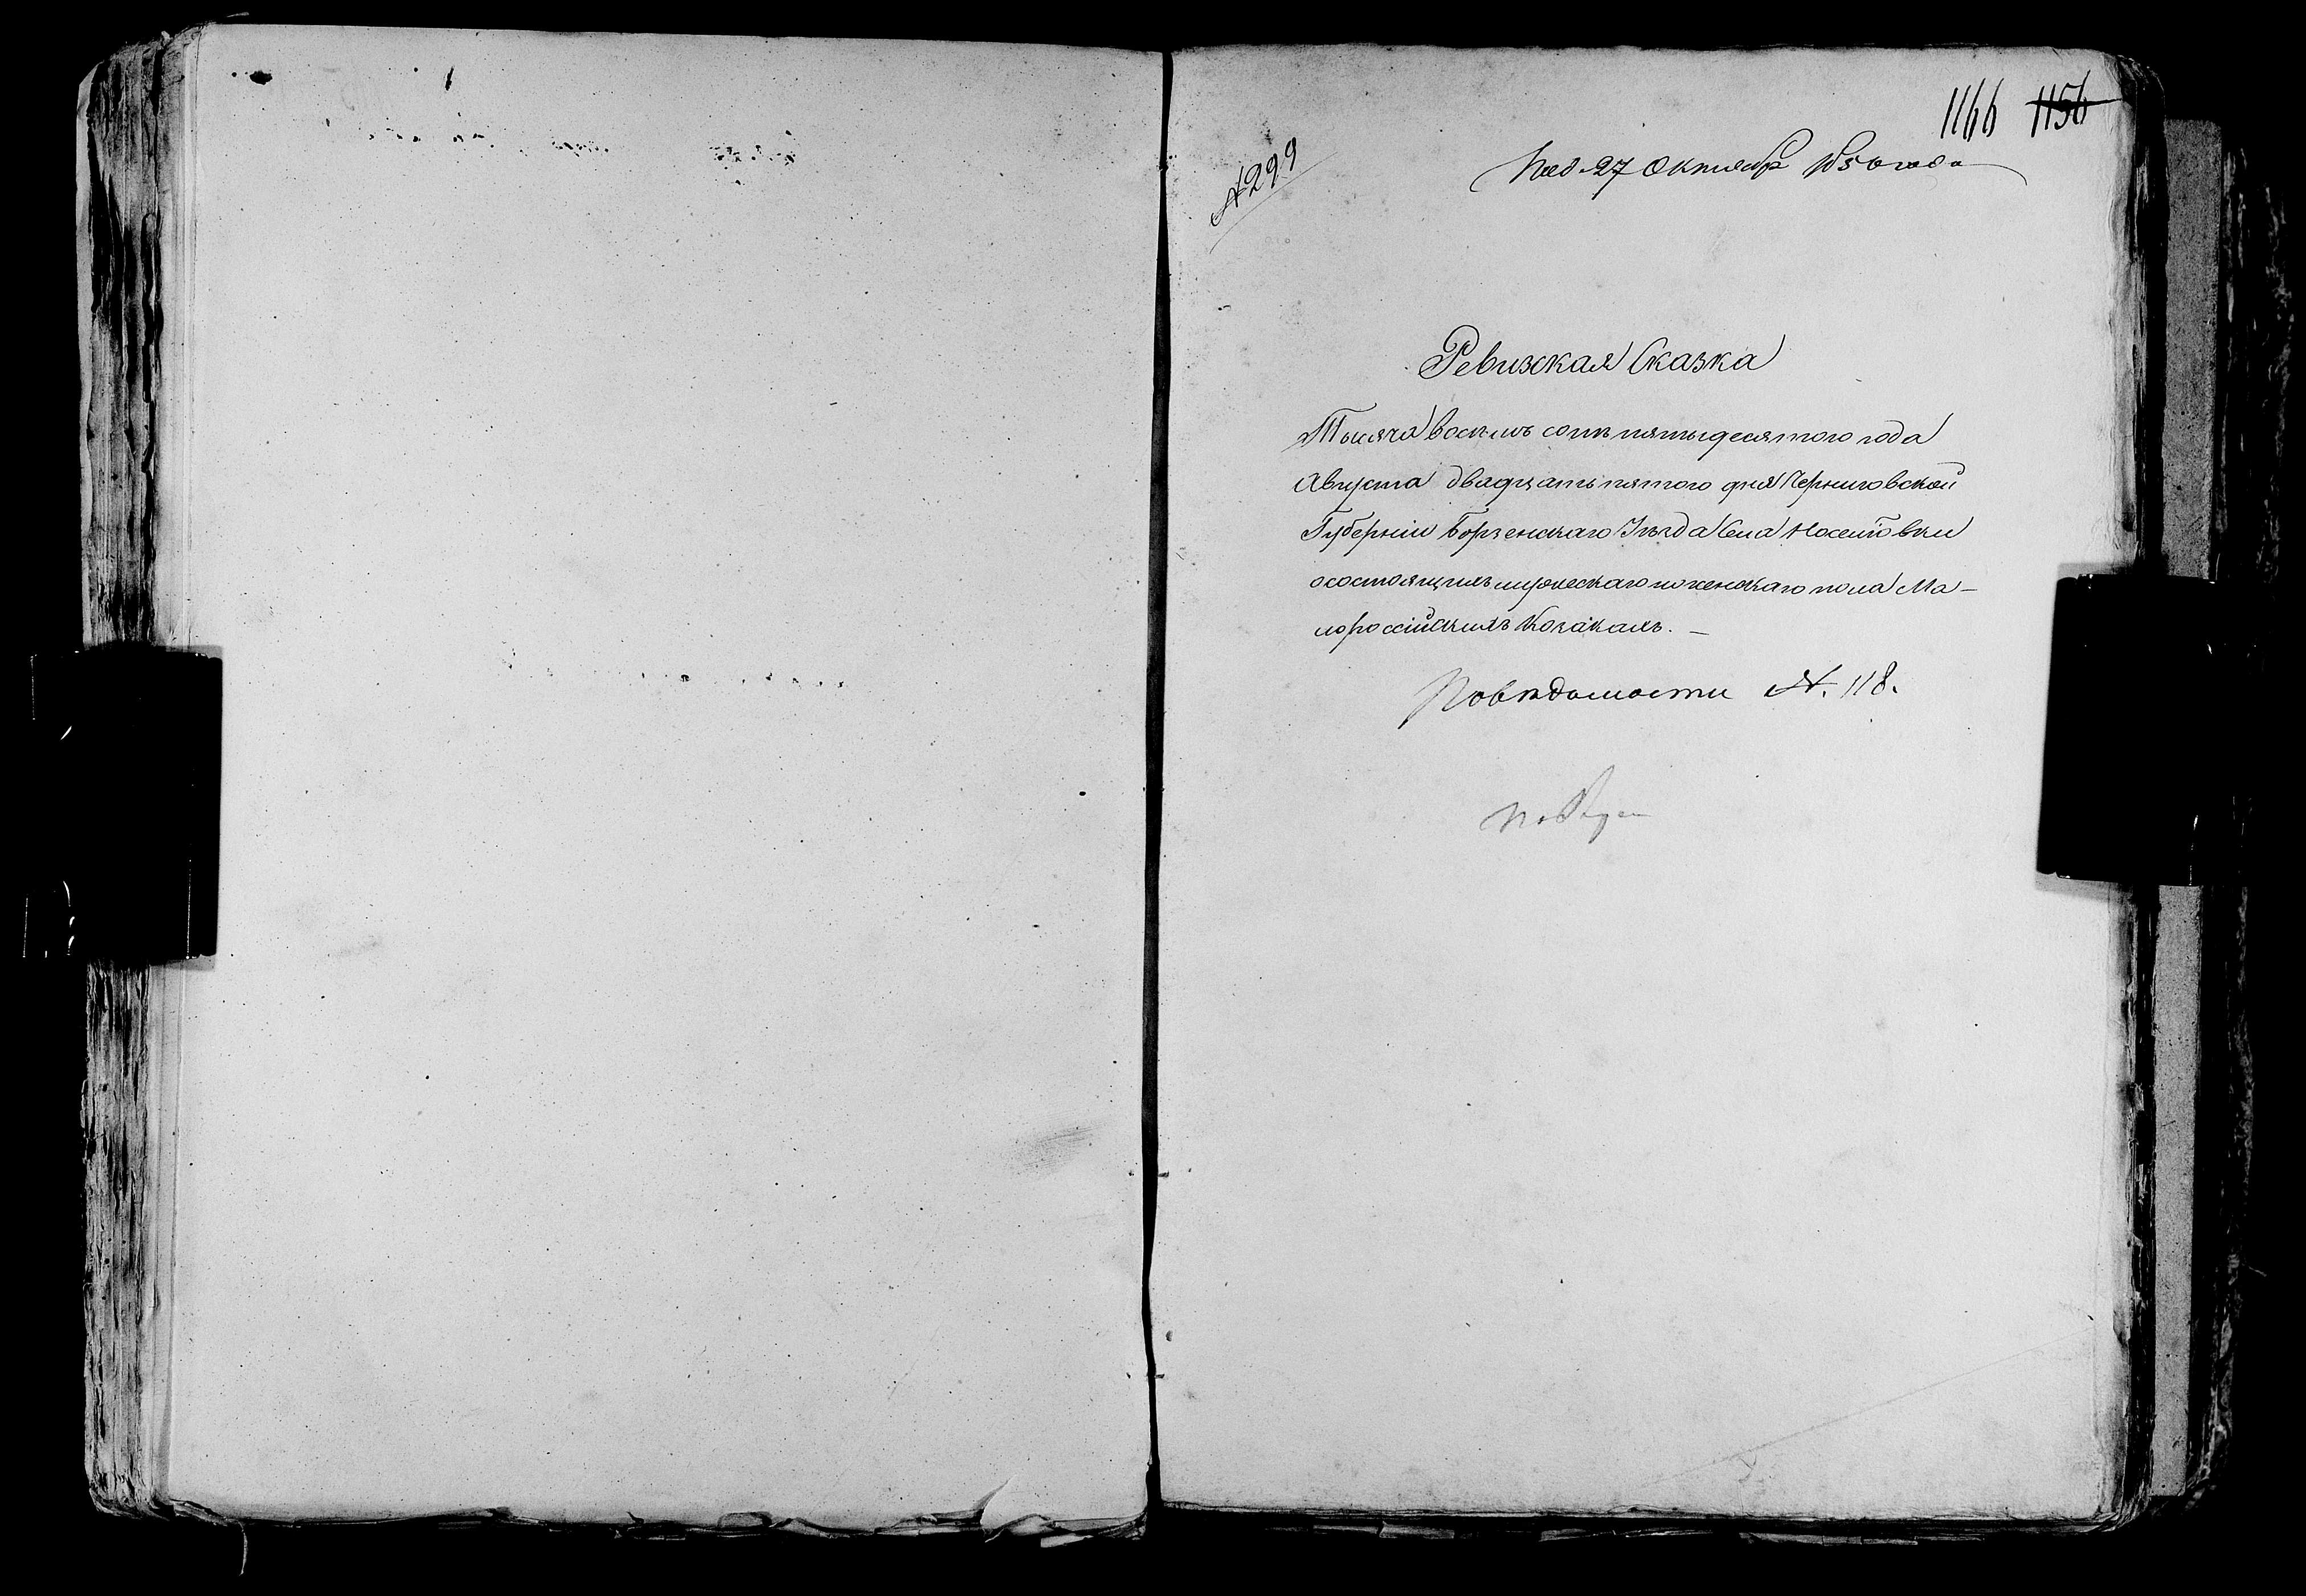 1166 1156
№ 299
Под. 27 Октября 1850 года
Ревизская Сказка
Тысяча восемь сотъ пятьидесятого года
Августа двадцать пятого дня Черниговской
Губерніи Борзенскаго Уѣзда Села
о состоящихъ мужескаго и женскаго пола Ма-
лороссійскихъ Козакахъ. —
По вѣдомости №. 118.